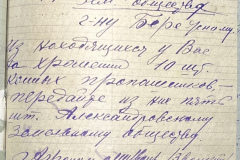 общества
г-ну Бережному.
Из находящихся у Вас
на хранении 10 шт.
конных пропашников, —
передайте из них пять
шт. Александровскому
земельному обществу